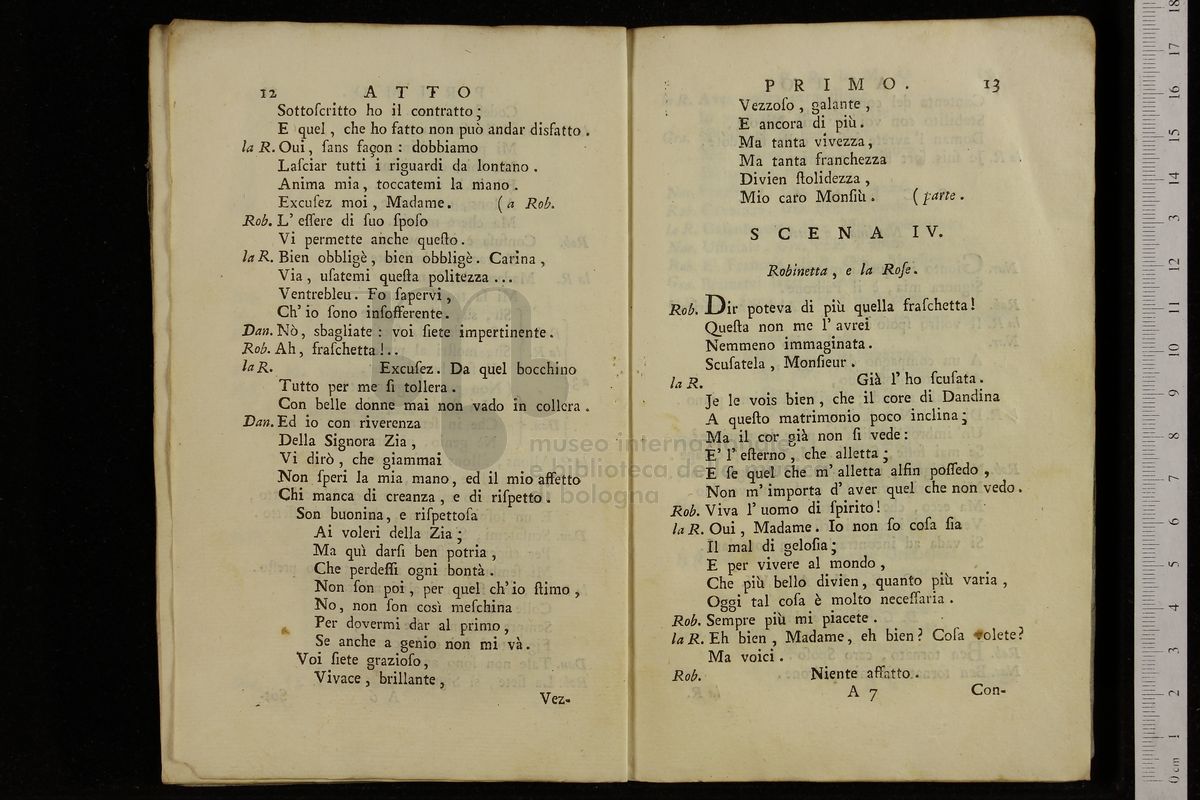 12 A T T O
Sottoſcritto ho il contratto;
E quel, che ho fatto non può andar disfatto.
la R. Oui, ſans façon: dobbiamo
Laſciar tutti i riguardi da lontano.
Anima mia, toccatemi la mano.
Excuſez moi, Madame. (a Rob.
Rob. L' eſſere di ſuo ſpoſo
Vi permette anche queſto.
la R. Bien obbligè, bien obbligè. Carina,
Via, uſatemi queſta politezza ...
Ventrebleu. Fo ſapervi,
Ch' io ſono inſofferente.
Dan. Nò, sbagliate: voi ſiete impertinente.
Rob. Ah, fraſchetta!..
la R. Excuſez. Da quel bocchino
Tutto per me ſi tollera.
Con belle donne mai non vado in collera.
Dan. Ed io con riverenza
Della Signora Zia,
Vi dirò, che giammai
Non ſperi la mia mano, ed il mio affetto
Chi manca di creanza, e di riſpetto.
Son buonina, e riſpettoſa
Ai voleri della Zia;
Ma quì darſi ben potria,
Che perdeſſi ogni bontà.
Non ſon poi, per quel ch' io ſtimo,
No, non ſon così meſchina
Per dovermi dar al primo,
Se anche a genio non mi và.
Voi ſiete grazioſo,
Vivace, brillante,
Vez-
P R I M O. 13
Vezzoſo, galante,
E ancora di più.
Ma tanta vivezza,
Ma tanta franchezza
Divien ſtolidezza,
Mio caro Monſiù. (parte.
S C E N A IV.
Robinetta, e la Roſe.
Rob. Dir poteva di più quella fraſchetta!
Queſta non me l' avrei
Nemmeno immaginata.
Scuſatela, Monſieur.
la R. Già l' ho ſcuſata.
Je le vois bien, che il core di Dandina
A queſto matrimonio poco inclina;
Ma il cor già non ſi vede:
E' l' eſterno, che alletta;
E ſe quel che m' alletta alfin poſſedo,
Non m' importa d' aver quel che non vedo.
Rob. Viva l' uomo di ſpirito!
la R. Oui, Madame. Io non ſo coſa ſia
Il mal di geloſia;
E per vivere al mondo,
Che più bello divien, quanto più varia,
Oggi tal coſa è molto neceſſaria.
Rob. Sempre più mi piacete.
la R. Eh bien, Madame, eh bien? Coſa volete?
Ma voici.
Rob. Niente affatto.
A 7 Con-
museo internazionale
e biblioteca della musica
di bologna
0 cm 1 2 3 4 5 6 7 8 9 10 11 12 13 14 15 16 17 18